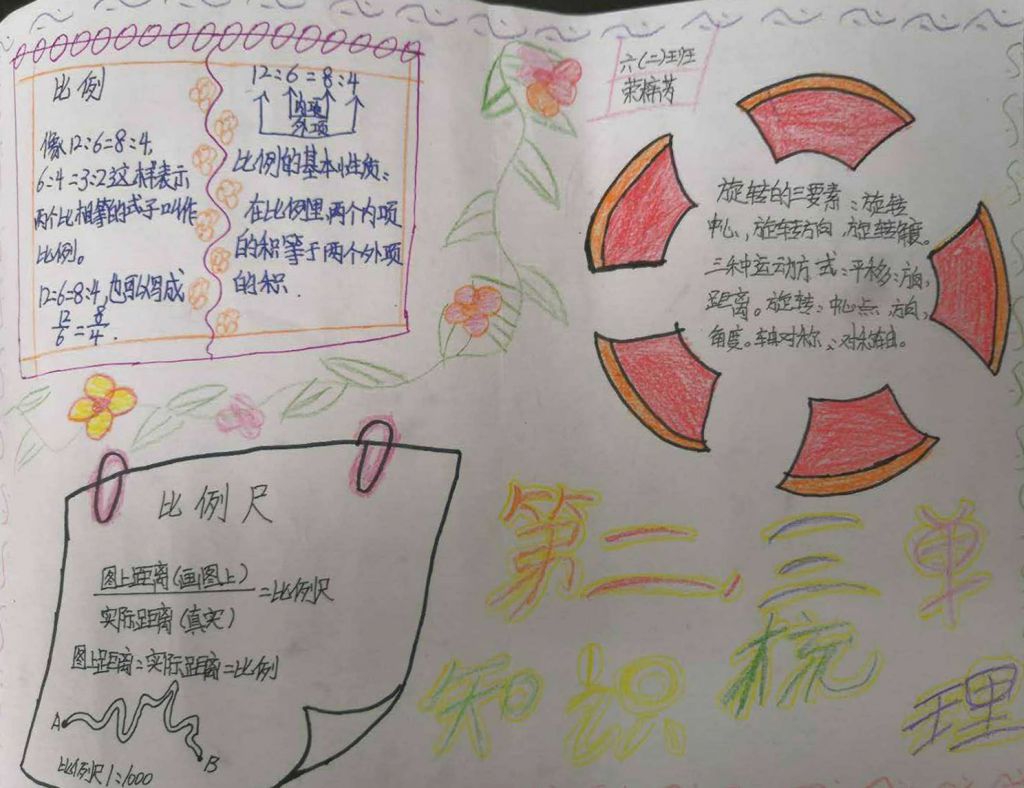 比例
像12:6=8:4,
6:4=3:2这样表示
两个比相等的式子叫作
比例。
12:6=8:4,也可以写成
12/6=8/4.
12:6=8:4
内项
外项
比例的基本性质:
在比例里两个内项
的积等于两个外项
的积
六(二)班
旋转的三要素:旋转
中心,旋转方向 旋转角度。
三种运动方式:平移:方向,
距离。旋转:中心点,方向,
角度。轴对称:对称轴。
比例尺
图上距离(画图上)
实际距离(真实)
=比例尺
图上距离:实际距离=比例
A
B
比例尺1:1000
第二、三单
知识梳理